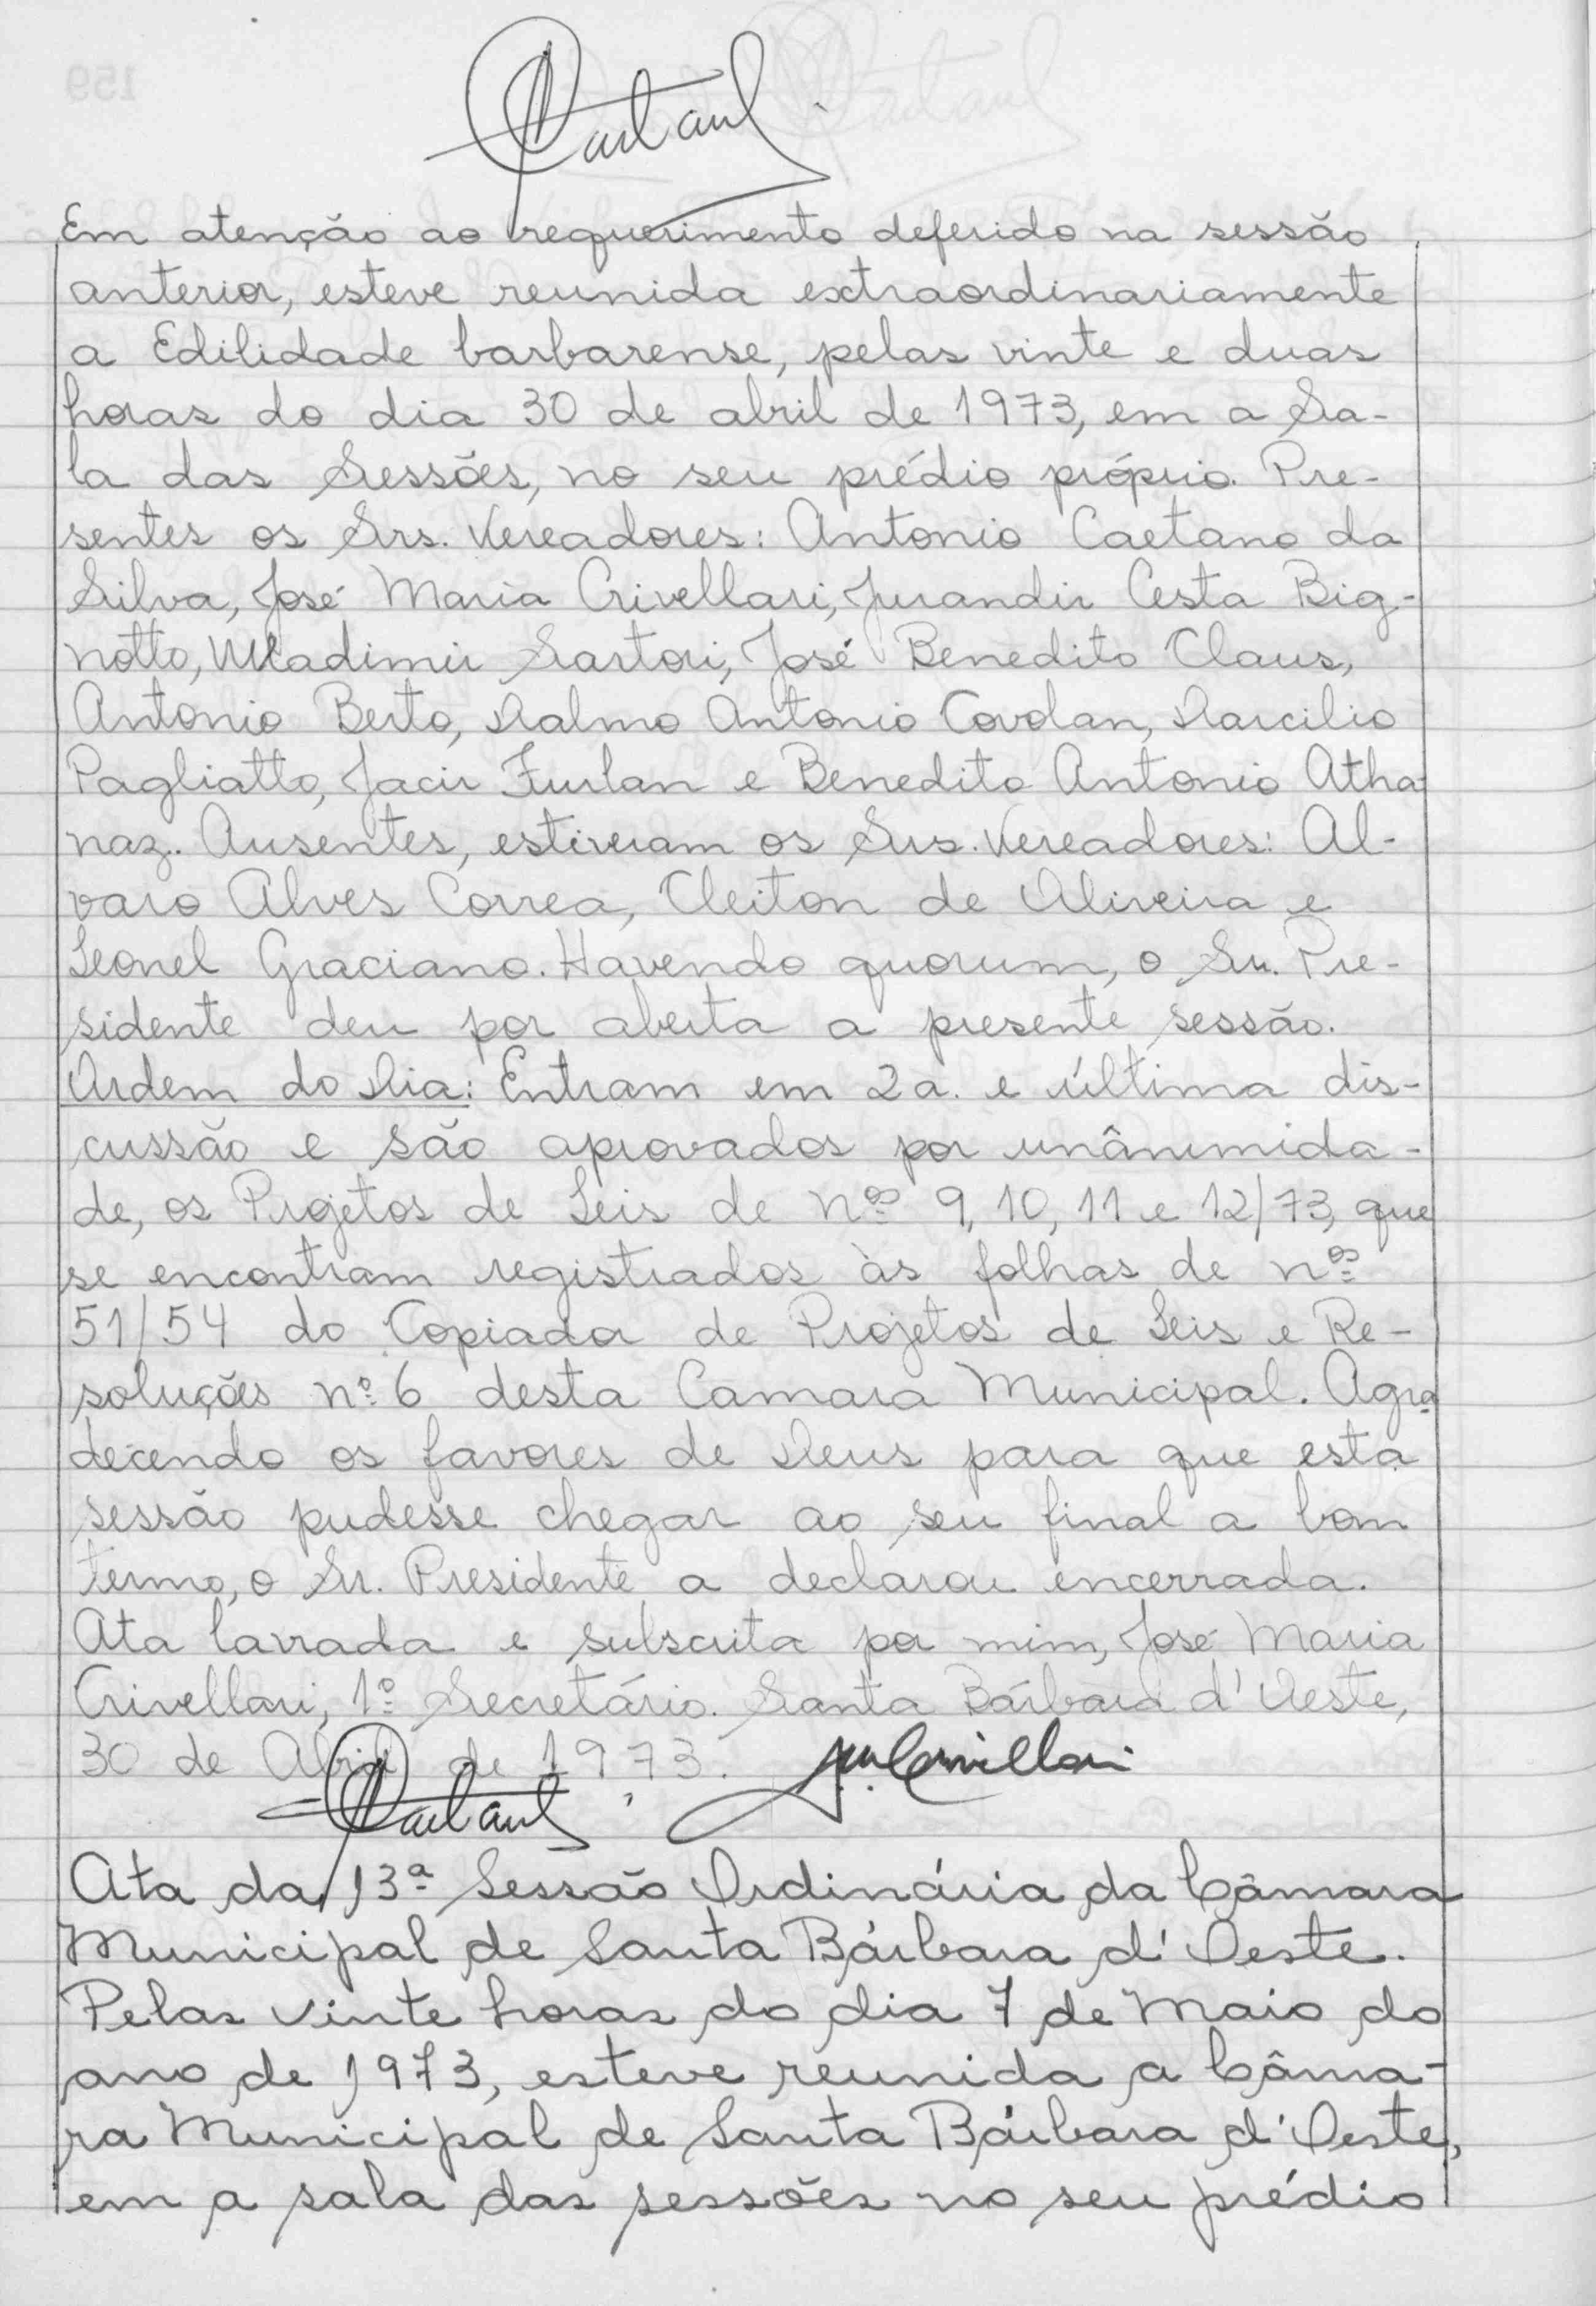 Em atenção ao requerimento deferido na sessão
anterior, esteve reunida extraordinariamente
a Edilidade barbarense, pelas vinte e duas
horas do dia 30 de abril de 1973, em a Sa-
la das Sessões, no seu prédio próprio. Pre-
sentes os Srs. Vereadores: Antonio Caetano da
Silva, José Maria Crivellari, Jurandir Cesta Big-
notto, Wladimir Sartori, José Benedito Claus,
Antonio Berto, Dalmo Antonio Covolan, Darcilio
Pagliatto, Jacir Furlan e Benedito Antonio Atha
naz. Ausentes, estiveram os Srs. Vereadores: Al-
varo Alves Correa, Cleiton de Oliveira e
Leonel Graciano. Havendo quorum, o Sr. Pre-
sidente deu por aberta a presente sessão.
Ordem do Dia: Entram em 2a. e última dis-
cussão e são aprovados por unânimida-
de, os Projetos de Leis de nºs 9, 10, 11 e 12/73, que
se encontram registrados às folhas de nºs
51/54 do Copiador de Projetos de Leis e Re-
soluções nº 6 desta Camara Municipal. Agra
decendo os favores de Deus para que esta
sessão pudesse chegar ao seu final a bom
termo, o Sr. Presidente a declarou encerrada.
Ata lavrada e subscrita por mim, José Maria
Crivellari, 1º Secretário. Santa Bárbara d'Oeste,
30 de Abril de 1973.
Ata da 13ª Sessão Ordinária da Câmara
Municipal de Santa Bárbara d'Oeste.
Pelas vinte horas do dia 7 de Maio do
ano de 1973, esteve reunida a Câma-
ra Municipal de Santa Bárbara d'Oeste,
em a sala das sessões no seu prédio